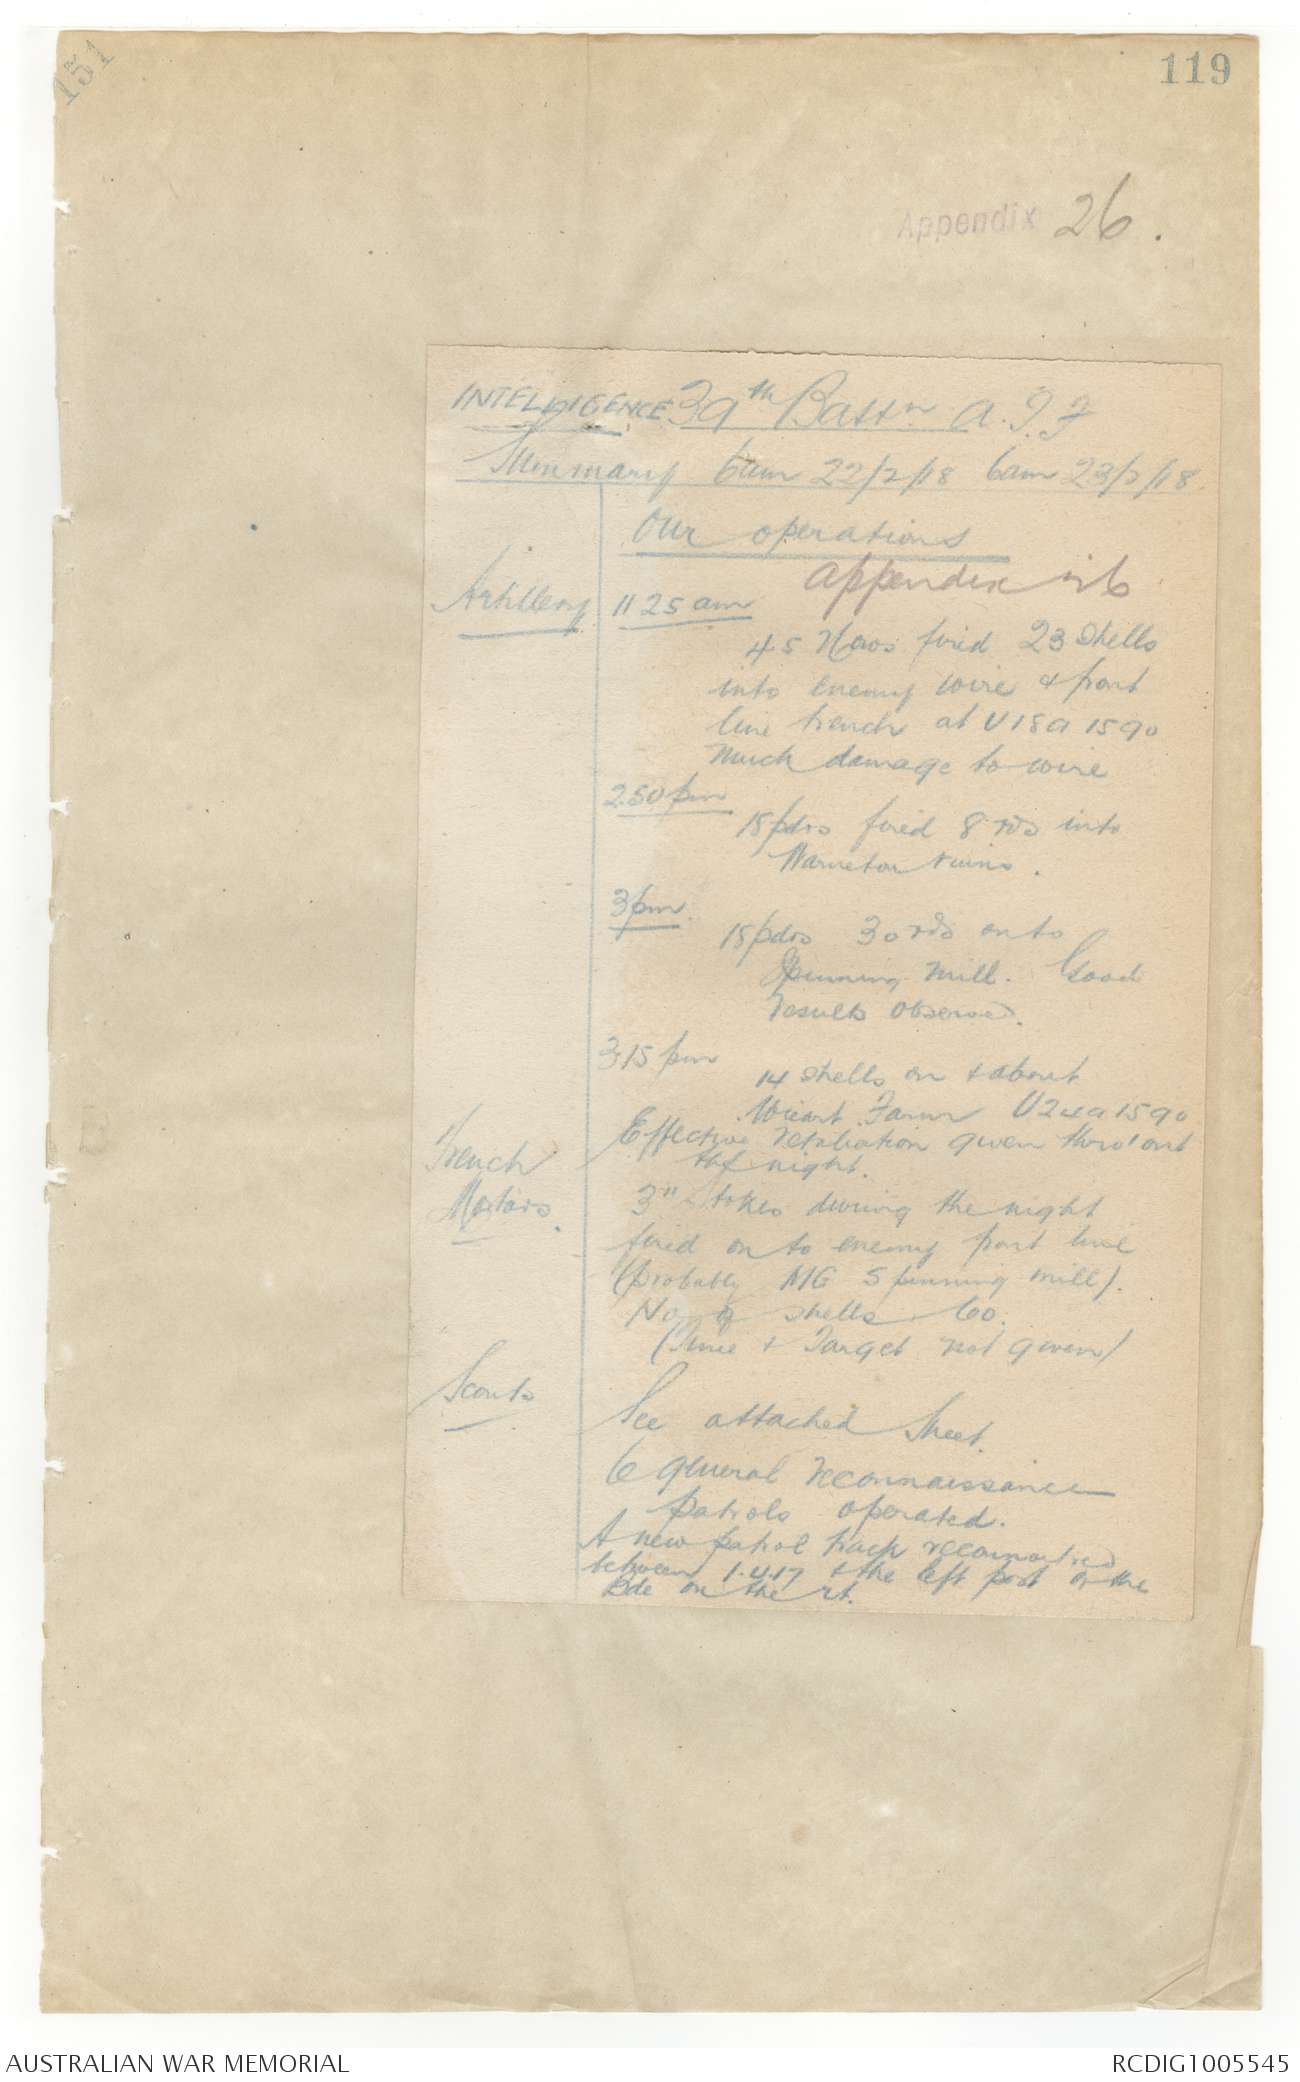 151
119
Appendix 26.
INTELLIGENCE 39th Battn A.I.F
Summary 6am 22/2/18 6am 23/2/18
Our operations
appendix 26
Artillery 11 25 am
4.5 Hows fired 23 shells
into enemy wire & front
line trench at U18a 1590
Much damage to wire
2.50 pm
18pdrs fired 8 rds into
Warneton ruins.
3pm
18pdrs 30 rds onto
Spinning Mill. Good
results observed.
3.15 pm
14 shells on & about
Wicart Farm U24a1590
Effective retaliation given thro'out
the night.
Trench
Mortars.
3" Stokes during the night
fired on to enemy front line
(probably MG Spinning mill).
No of shells 60.
(Time & Target not given)
Scouts
See attached Sheet.
6 general reconnaissance
patrols operated.
A new patrol track reconnoitred
between 1.4.17 & the left post of the
Bde on the rt.
AUSTRALIAN WAR MEMORIAL
RCDIG1005545